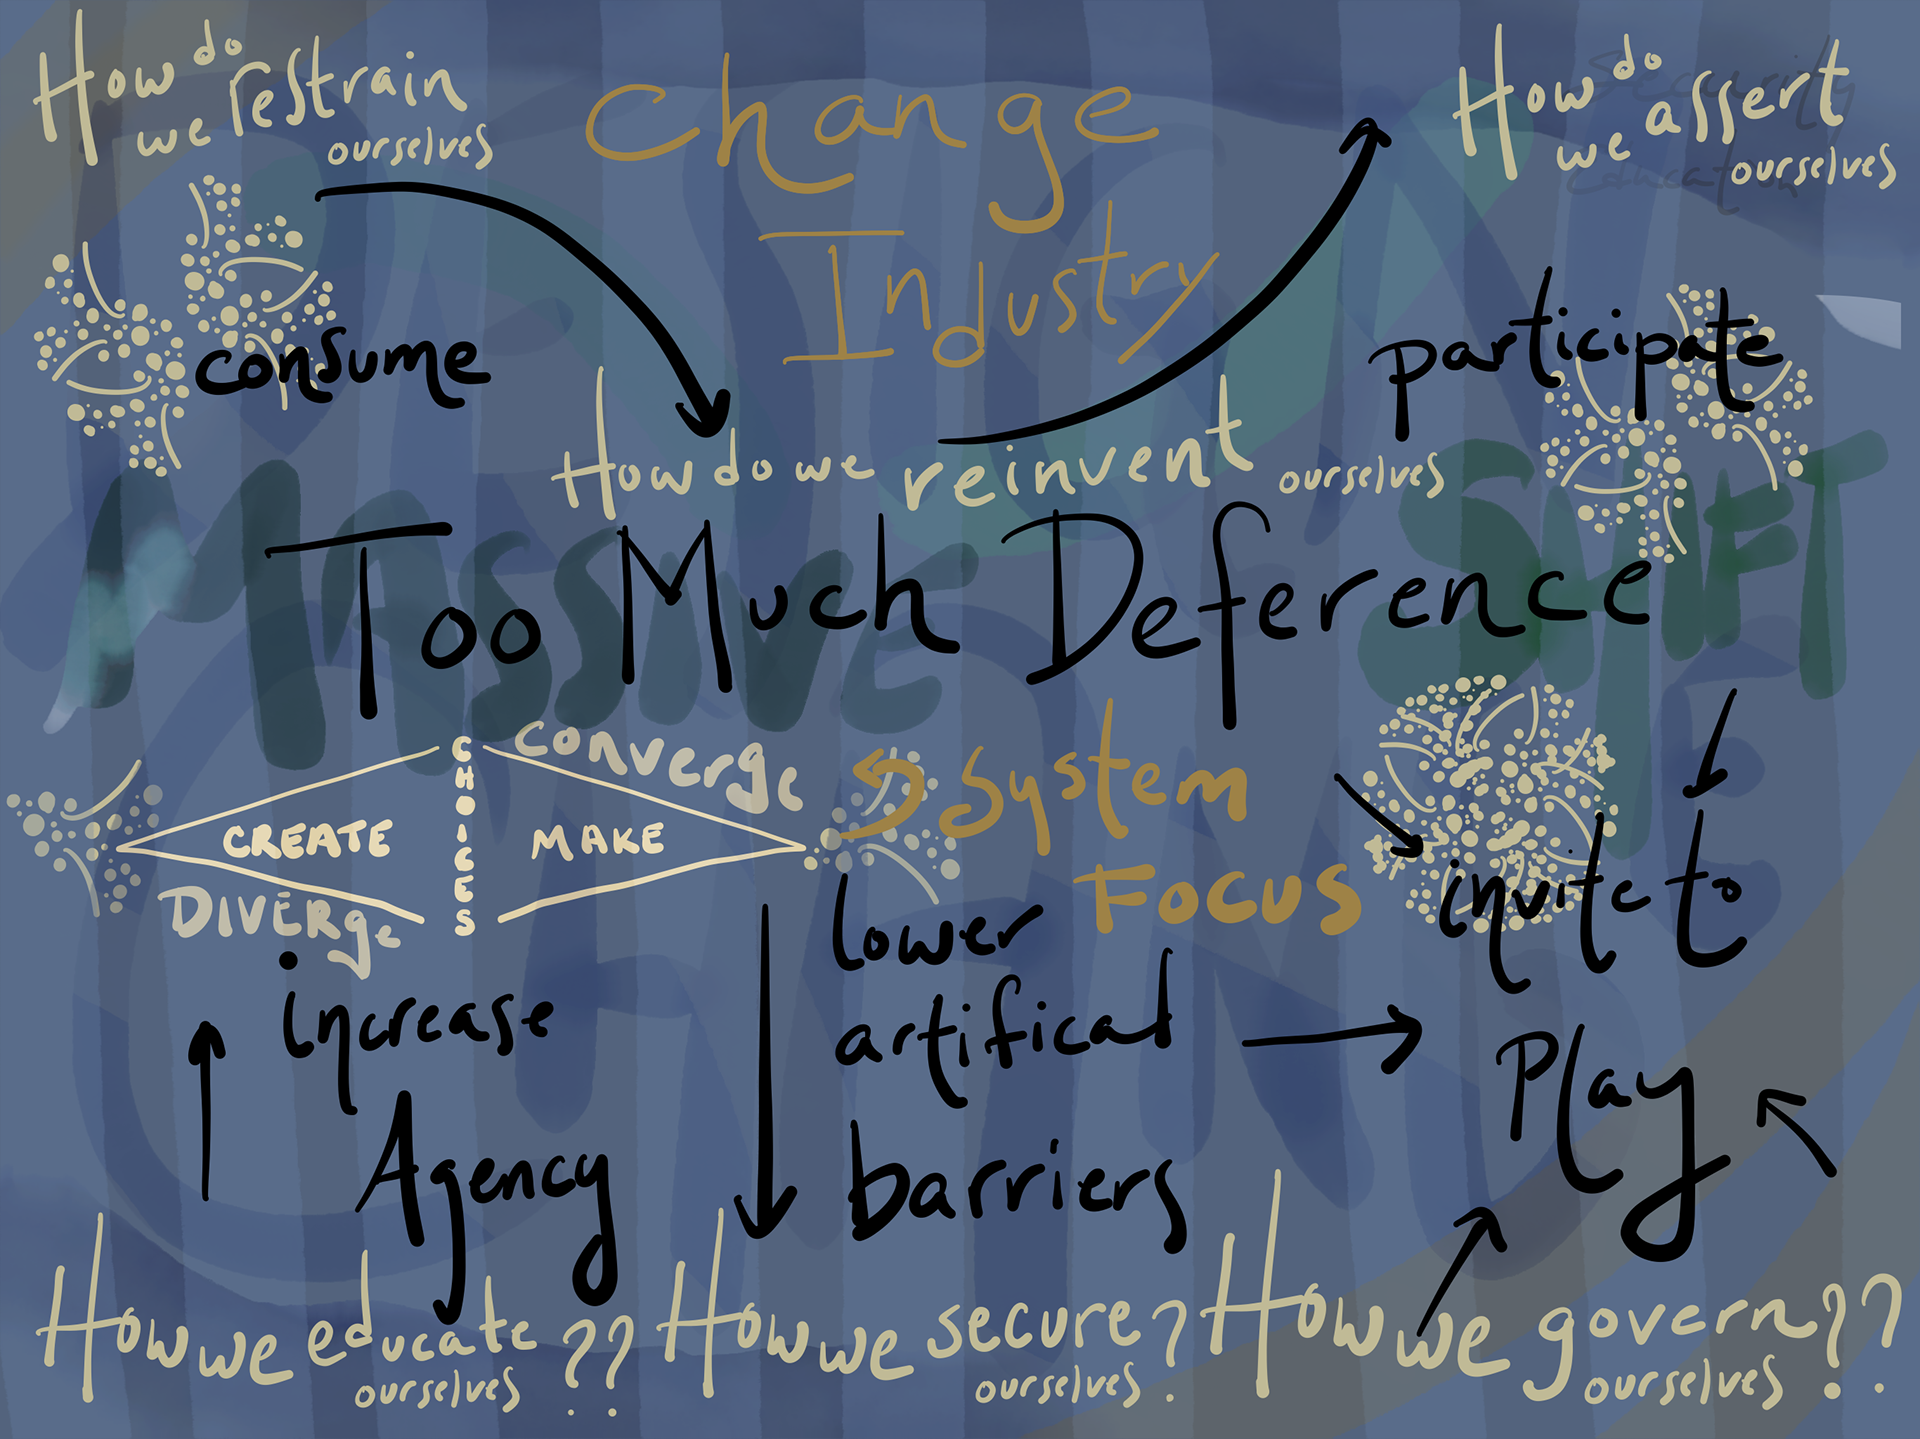 How do we restrain ourselves
Change
Industry
How do we assert ourselves
Security
Education
consume
participate
How do we reinvent ourselves
MASSIVE SHIFT
Too Much Deference
CHOICES
converge
CREATE
MAKE
DIVERge
System
Focus
invite to
Play
increase
Agency
lower
artifical
barriers
How we educate ourselves ??
How we secure ourselves ?
How we govern ourselves ??